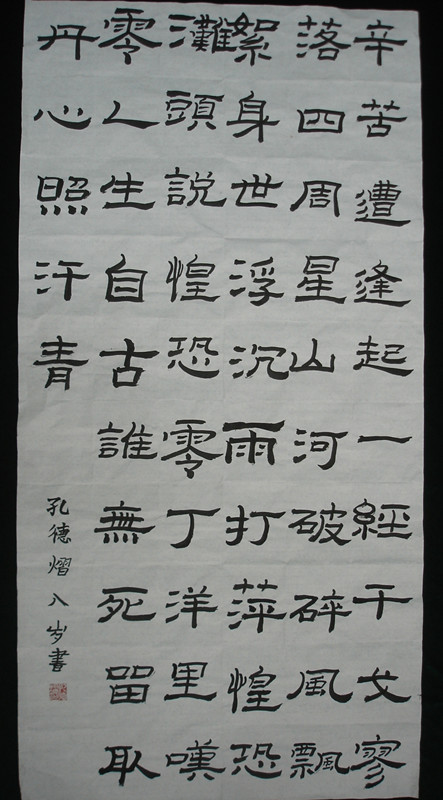 辛苦遭逢起一經干戈寥
落四周星山河破碎風飄
絮身世浮沉雨打萍惶恐
灘頭說惶恐零丁洋里嘆
零人生自古誰無死留取
丹心照汗青
孔德熠八岁書